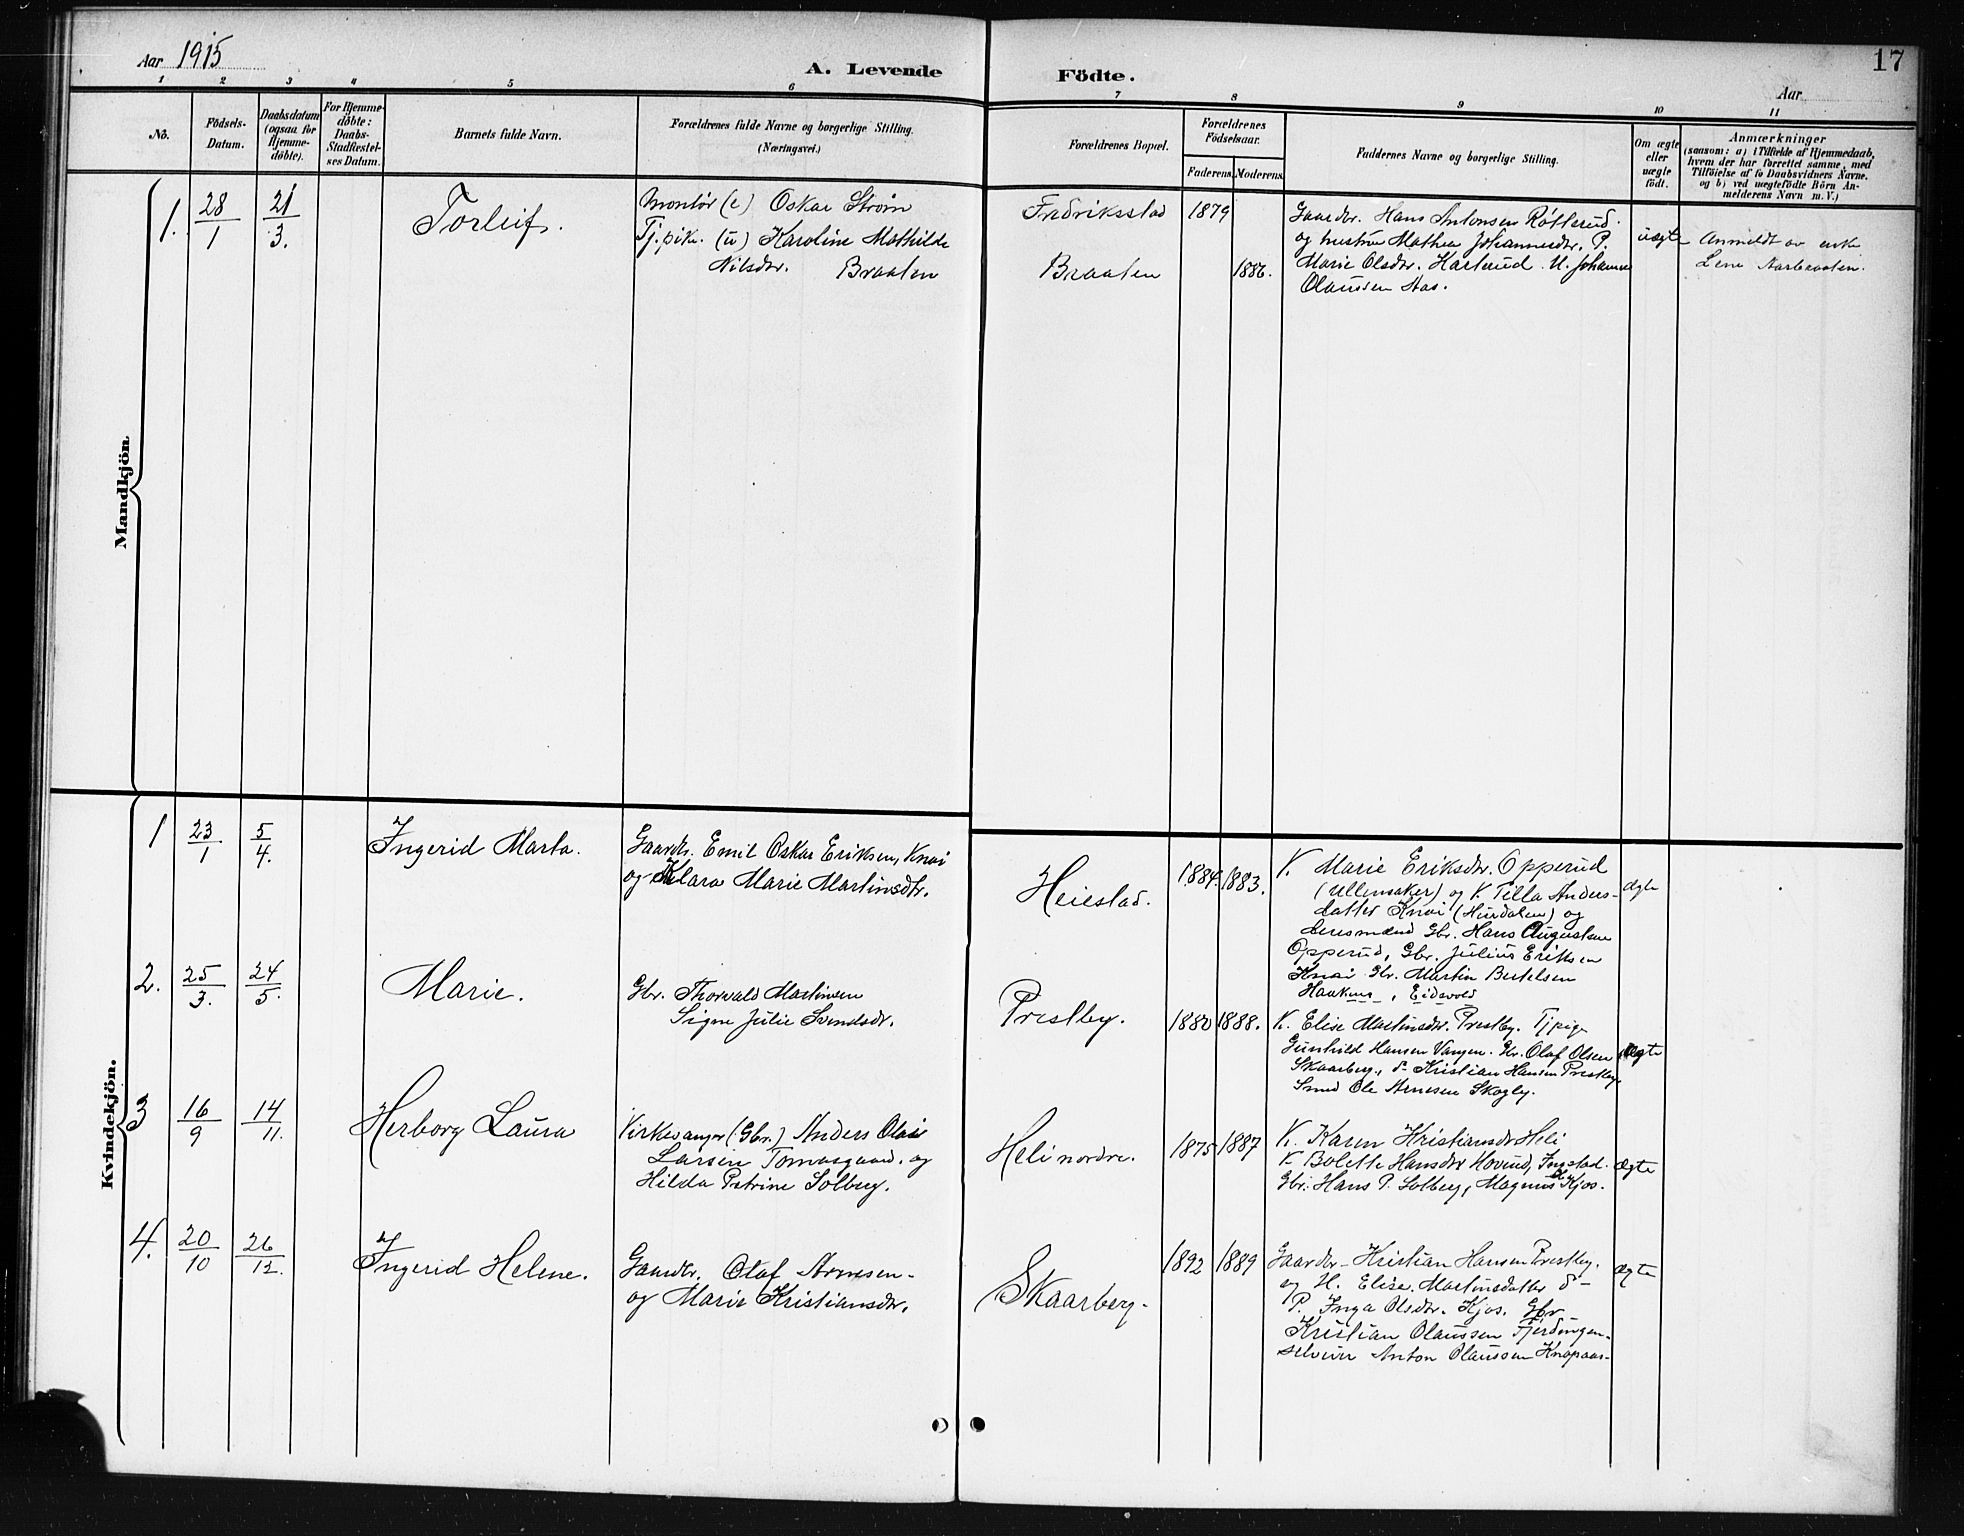 Aar 1915
A. Levende Födte.
17
Aar
1 2 3 4 5 6 7 8 9 10 11
Nö.
Födsels-
Datum.
Daabsdatum
(ogsaa for
Hjemme-
döbte).
For Hjemme-
döbte:
Daabs-
Stadfæstel-
ses Datum.
Barnets fulde Navn.
Forældrenes fulde Navne og borgerlige Stilling.
(Næringsvei.)
Forældrenes Bopæl.
Forældrenes
Födselsaar.
Faderens. Moderens.
Faddernes Navne og borgerlige Stilling.
Om ægte
eller
uægte
födt.
Anmærkninger
(saasom: a) i Tilfælde af Hjemmedaab,
hvem der har forrettet samme, med
Tilföielse af to Daabsvidners Navne.
og b) ved uægtefödte Börn An-
melderens Navn m. V.)
Mandkjön.
1. 28/1 21/3. Torleif.
Montør (e) Oskar Strøm
Tj.pike. (u) Karoline Mathilde
Nilsdtr. Braaten
Fredriksstad 1879
Braaten 1886.
Gaardbr. Hans Antonsen Røtterud
og hustru Mathea Johannesdtr. P.
Marie Olsdtr. Harterud. U. Johannes
Olaussen Aas.
uægte
Anmeldt av enke
Lene Narbraaten.
Kvindekjön.
1 23/1 5/4. Ingerid Marta.
Gaardbr. Emil Oskar Eriksen, Knai
og Klara Marie Martinsdtr.
Heiestad. 1884. 1883.
K. Marie Eriksdtr. Opperud
(Ullensaker) og K. Tilla Anders-
datter Knai (Hurdalen) og
Hans Augustsen
Opperud, Gbr. Julius Eriksen
Knai Gbr. Martin Bertelsen
Haakens, Eidsvold
ægte
2. 25/3. 24/5. Marie.
Gbr. Thorvald Martinsen
Signe Julie Svendsdr.
Prestby. 1880 1888.
K. Elise Martinsdtr. Prestby. Tjpige
Gunhild Hansen Vangen. Gbr. Olaf Olsen
Skaarberg, S. Kristian Hansen Prestby,
Smed Ole Arnesen Skogly.
Ægte
3 16/9 14/11. Herborg Laura
Kirkesanger (Gbr.) Anders Olai
Larsen Tomasgaard. og
Hilda Petrine Solberg.
Heli nordre. 1875 1887
K. Karen Kristiansdr Heli
K Bolette Hansdtr Hovind,
Gbr. Hans P. Solberg, Magnus Kjos.
Ægte
4. 20/10 26/12. Ingerid Helene.
Gaardbr. Olaf Arnesen -
og Marie Kristiansdtr.
Skaarberg. 1892 1889
Gaardbr - Kristian Hansen Prestby.
og H. Elise Martinsdatter S -
P. Inga Olsdtr. Kjos. Gbr
Kristian Olaussen Fjerdingen.
selveier Anton Olaussen Knapaas.
Ægte